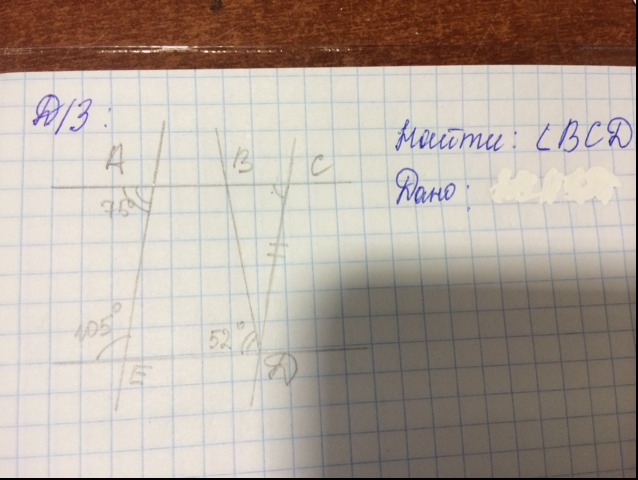 Д/З:
Найти: ∠BCD
Дано:
A B C
75°
105° 52°
E D